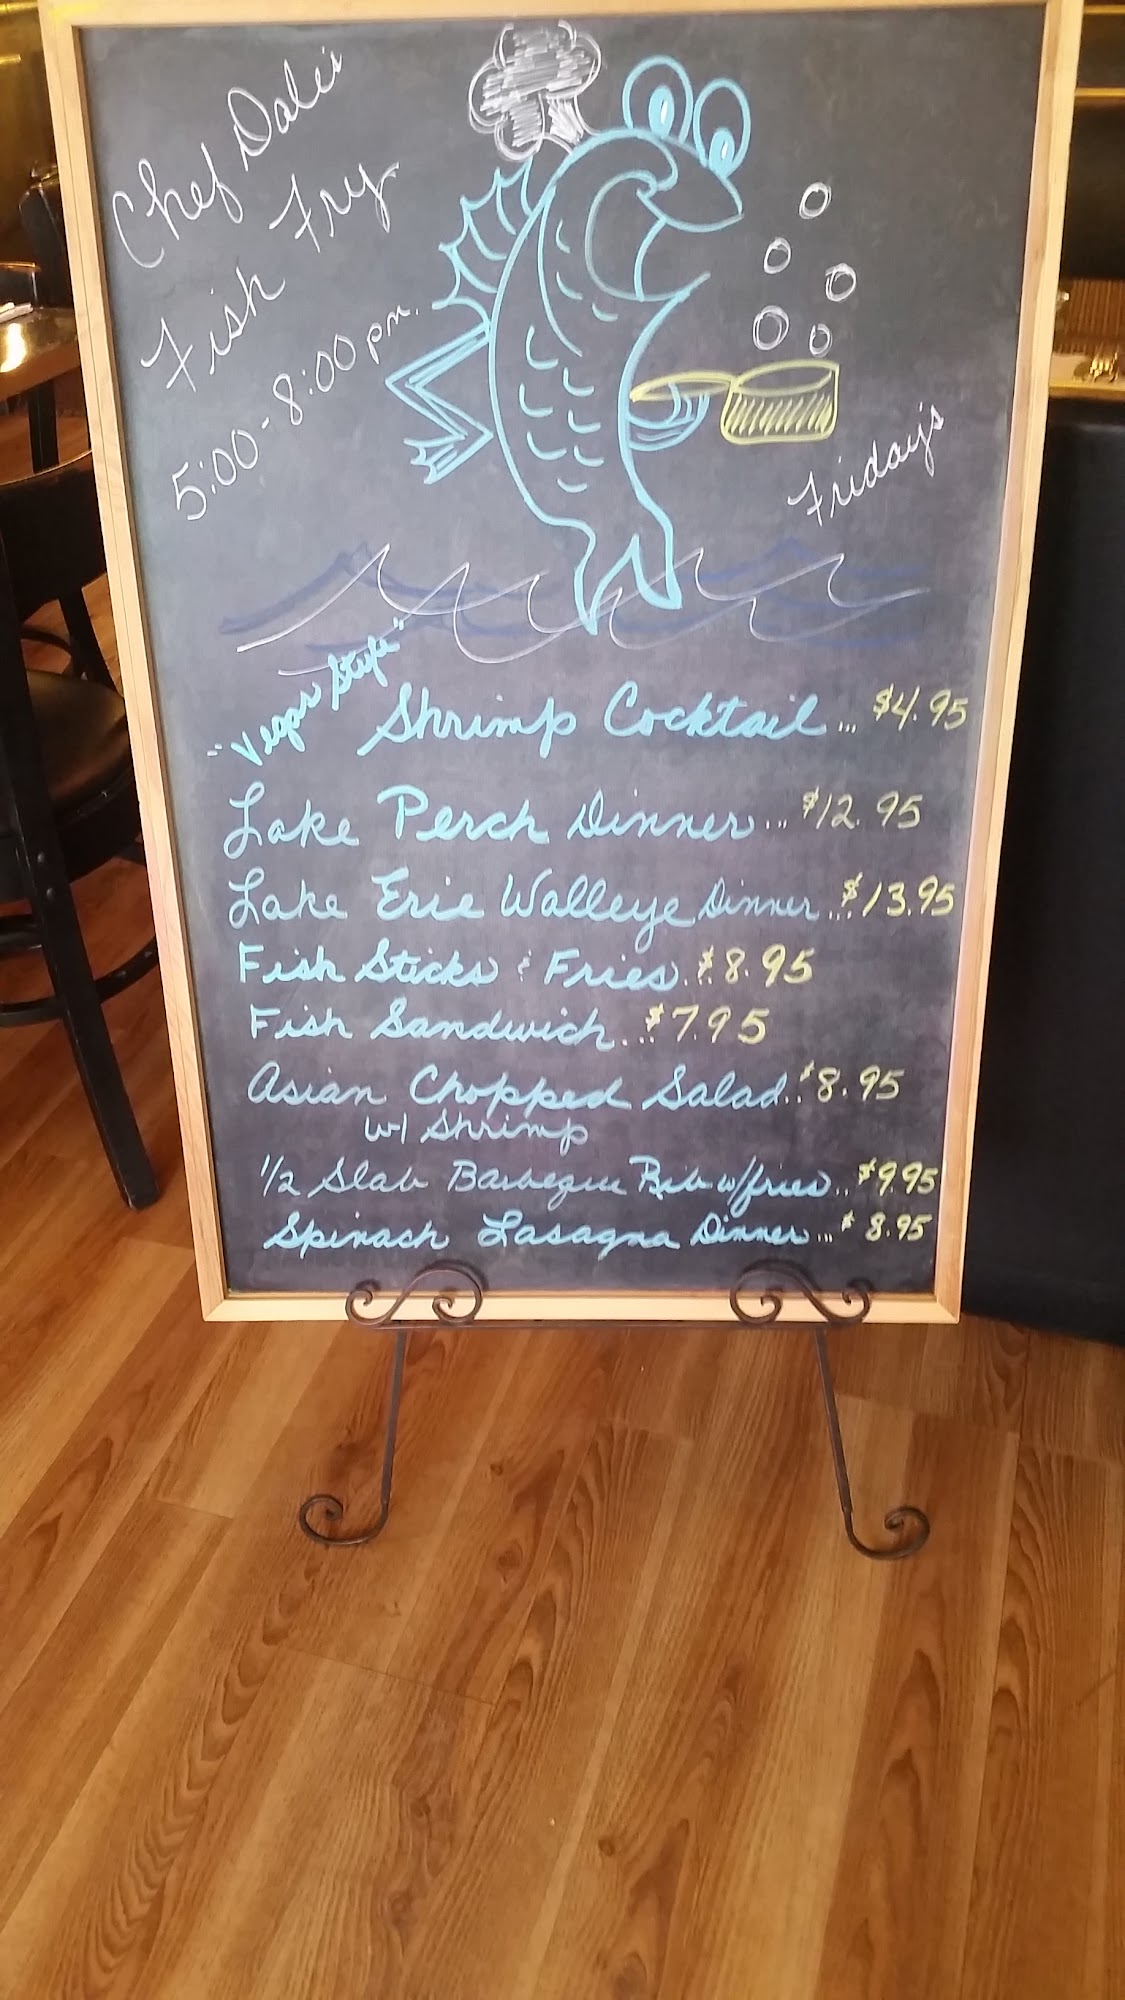 Chef Dale's
Fish Fry
5:00-8:00 pm.
Friday's
"Vegas Style"
Shrimp Cocktail... $4.95
Lake Perch Dinner... $12.95
Lake Erie Walleye Dinner... $13.95
Fish Sticks & Fries... $8.95
Fish Sandwich... $7.95
Asian Chopped Salad... $8.95
w/ Shrimp
1/2 Slab Barbeque Rib w/fries... $9.95
Spinach Lasagna Dinner... $8.95